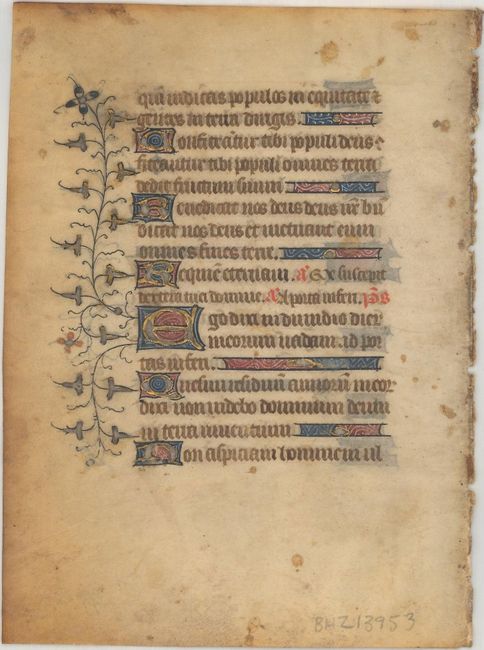 qm̄ iudicas populos in equitate ⁊
gentes in terra dirigis.
Confiteātur tibi populi deus ⁊
fiteantur tibi populi omnes terra
dedit fructum suum
Benedicat nos deus deus nr̄ bn̄
dicat nos deus et metuant eum
omnes fines terre.
Requiē eternam. a͞ Me suscepit
dextera tua domine. a͞ A porta inferi. ps̄
Ego dixi in dimidio dierꝫ
meorum uadam ad por
tas inferi.
Quesiui residuū annorū meoꝝ
dixi non uidebo dominum deum
in terra uiuentium
Non aspiciam hominem ul
BHZ13953